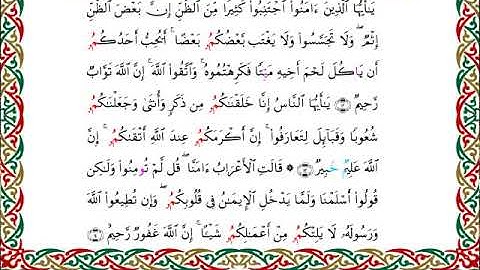 يَٰٓأَيُّهَا ٱلَّذِينَ ءَامَنُوا۟ ٱجْتَنِبُوا۟ كَثِيرًا مِّنَ ٱلظَّنِّ إِنَّ بَعْضَ ٱلظَّنِّ
إِثْمٌ ۖ وَلَا تَجَسَّسُوا۟ وَلَا يَغْتَب بَّعْضُكُمُ بَعْضًا ۚ أَيُحِبُّ أَحَدُكُمُ
أَن يَاكُلَ لَحْمَ أَخِيهِ مَيْتًا فَكَرِهْتُمُوهُ ۚ وَٱتَّقُوا۟ ٱللَّهَ ۚ إِنَّ ٱللَّهَ تَوَّابٌ
رَّحِيمٌ ۝١٢ يَٰٓأَيُّهَا ٱلنَّاسُ إِنَّا خَلَقْنَٰكُمُ مِّن ذَكَرٍ وَأُنثَىٰ وَجَعَلْنَٰكُمُ
شُعُوبًا وَقَبَآئِلَ لِتَعَارَفُوٓا۟ ۚ إِنَّ أَكْرَمَكُمُ عِندَ ٱللَّهِ أَتْقَىٰكُمُ ۚ إِنَّ
ٱللَّهَ عَلِيمٌ خَبِيرٌ ۝١٣ ۞ قَالَتِ ٱلْأَعْرَابُ ءَامَنَّا ۖ قُل لَّمْ تُومِنُوا۟ وَلَٰكِن
قُولُوٓا۟ أَسْلَمْنَا وَلَمَّا يَدْخُلِ ٱلْإِيمَٰنُ فِى قُلُوبِكُمُ ۖ وَإِن تُطِيعُوا۟ ٱللَّهَ
وَرَسُولَهُۥ لَا يَلِتْكُمُ مِّنْ أَعْمَٰلِكُمُ شَيْـًٔا ۚ إِنَّ ٱللَّهَ غَفُورٌ رَّحِيمٌ ۝١٤